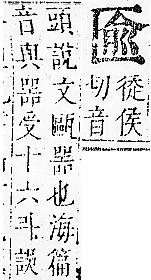 匬
從侯
切音
頭說文甌器也海篇
音與器受十六斗談